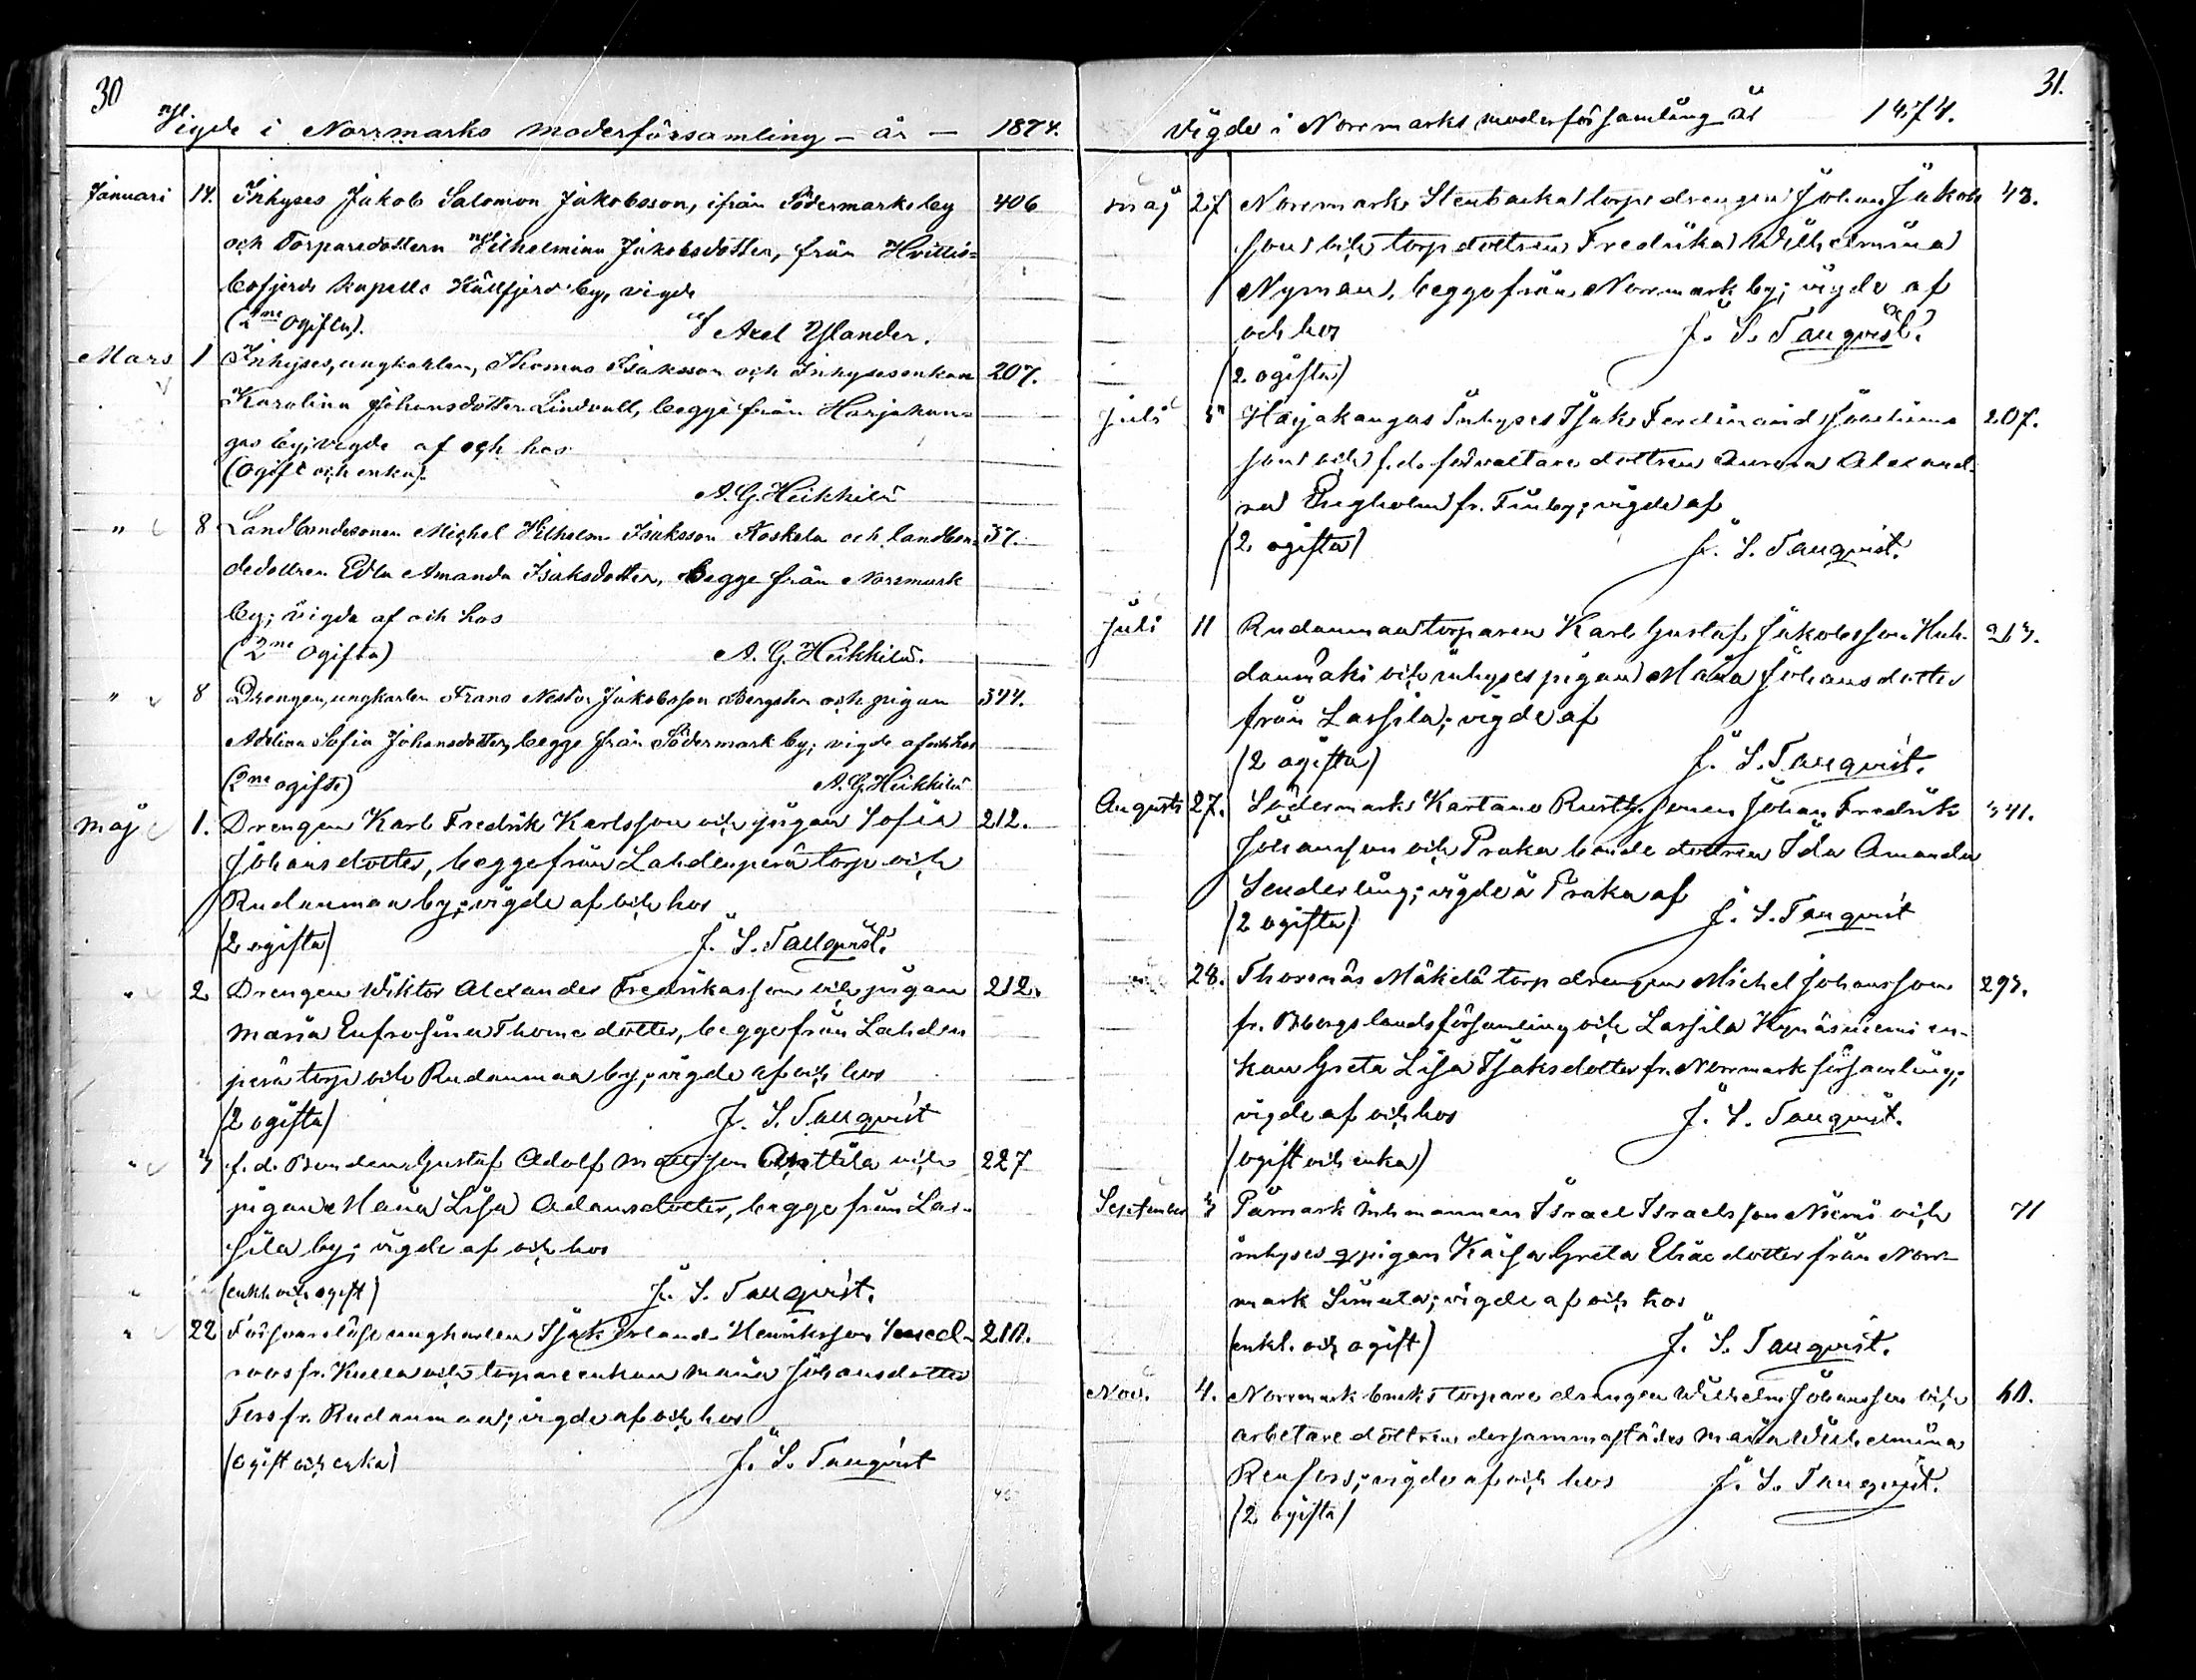 30
Vigde i Norrmarks moderförsamling - år - 1874.
Januari 14. Inhyses Jakob Salomon Jakobsson, ifrån Södermarks by 406
och Torparedottern Wilhelmina Jakobsdotter, från Hvittis-
bofjerds kapells Kållfjerd by, vigde
(2ne Ogifta). Axel Ylander.
Mars 1 Inhyses, ungkarlen, Thomas Isaksson och Inhysesenkan 207.
Karolina Johansdotter Lindvall, begge från Harjakan-
gas by; vigde af och hos
(Ogift och enka).
A. G. Heikkilä
" 8 Landbondesonen Michel Wilhelm Isaksson Koskela och landbon- 37.
dedottren Edla Amanda Isaksdotter, begge från Norrmark
by; vigde af och hos
(2ne Ogifta) A. G. Heikkilä.
" 8 Drengen, ungkarlen Frans Nestor Jakobsson Bergsten och pigan 344.
Adelina Sofia Johansdotter, begge från Södermark by; vigde af och hos
(2ne ogifte) A. G. Heikkilä
Maj 1. Drengen Karl Fredrik Karlsson och pigan Sofia 212.
Johansdotter, begge från Lahdenperä torp och
Rudanmaa by; vigde af och hos
(2 ogifta) J. S. Tallqvist.
" 2 Drengen Wiktor Alexander Fredrikasson och pigan 212.
Maria Eufrosina Thomedotter, begge från Lahden
perä torp och Rudanmaa by; vigde af och hos
(2 ogifta) J. S. Tallqvist
" 3 f.d. Bonden Gustaf Adolf Mattsson Anttila och 227
pigan Maria Lisa Adamsdotter, begge från Las-
sila by; vigde af och hos
" (enkl. och ogift) J. S. Tallqvist.
" 22 Försvarslöse ungkarlen Isak Erland Henriksson 210.
roos fr. Kulla och torpareenkan Maria Johansdotter
Fors fr. Rudanmaa; vigde af och hos
(ogift och enka) J. S. Tallqvist
31.
Vigde i Norrmarks moderförsamling år 1874.
Maj 27 Norrmarks Stenbacka torps drengen Johan Jakobs 43.
son och torpdottren Fredrika Wilhelmina
Nyman, begge från Norrmark by; vigde af
och hos J. S. Tallqvist.
(2 ogifta)
Juli 5 Harjakangas Inhyses Isak Ferdinand 207.
son och f.d. förvaltare dottren Aurora Alexand-
ra Engholm fr. Finby; vigde af
(2 ogifta) J. S. Tallqvist.
Juli 11 Rudanmaa torparen Karl Gustaf Jakobsson Huh- 213.
danmäki och inhyses pigan Maria Johansdotter
från Lassila; vigde af
(2 ogifta) J. S. Tallqvist.
Augusti 27. Södermarks Kartano Rusth. sonen Johan Fredrik 341.
Johansson och Praka bonde dottren Ida Amanda
Senderling; vigde å Praka af
(2 ogifta) J. S. Tallqvist
28. Thorsnäs Mäkelä torp drengen Michel Johansson 293.
fr. Bbergs landsförsamling och Lassila Kynäsniemi en-
kan Greta Lisa Isaksdotter fr. Norrmark församling;
vigde af och hos J. S. Tallqvist.
(ogift och enka)
September 3 Påmark inhmannen Israel Israelsson Niemi och 71
inhyses pigan Kaisa Greta Eliaedotter från Norr-
mark Simula; vigde af och hos
(enkl. och ogift) J. S. Tallqvist.
Nov. 4. Norrmark bruks torpare drengen Wilhelm Johansson och 60.
arbetare dottren dersammastädes Maria Wilhelmina
Renfors; vigde af och hos J. S. Tallqvist.
(2 ogifta)